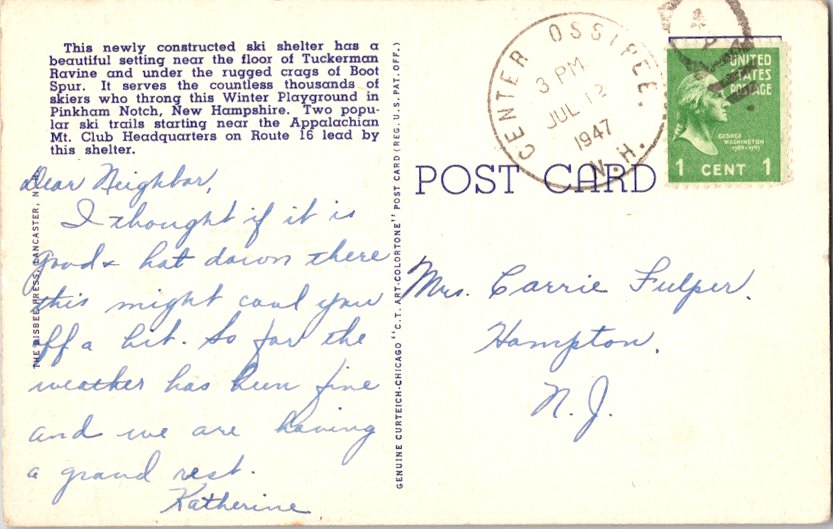 This newly constructed ski shelter has a
beautiful setting near the floor of Tuckerman
Ravine and under the rugged crags of Boot
Spur. It serves the countless thousands of
skiers who throng this Winter Playground in
Pinkham Notch, New Hampshire. Two popu-
lar ski trails starting near the Appalachian
Mt. Club Headquarters on Route 16 lead by
this shelter.
Dear Neighbor,
I thought if it is
good & hot down there
this might cool you
off a bit. So far the
weather has been fine
and we are having
a grand rest.
Katherine
THE BISBEE PRESS, LANCASTER, N. H.
GENUINE CURTEICH-CHICAGO "C. T. ART-COLORTONE" POST CARD (REG. U. S. PAT. OFF.)
CENTER OSSIPEE.
N. H.
3 PM
JUL 12
1947
UNITED
STATES
POSTAGE
GEORGE
WASHINGTON
1789-1797
1 CENT 1
POST CARD
Mrs. Carrie Fulper.
Hampton.
N. J.